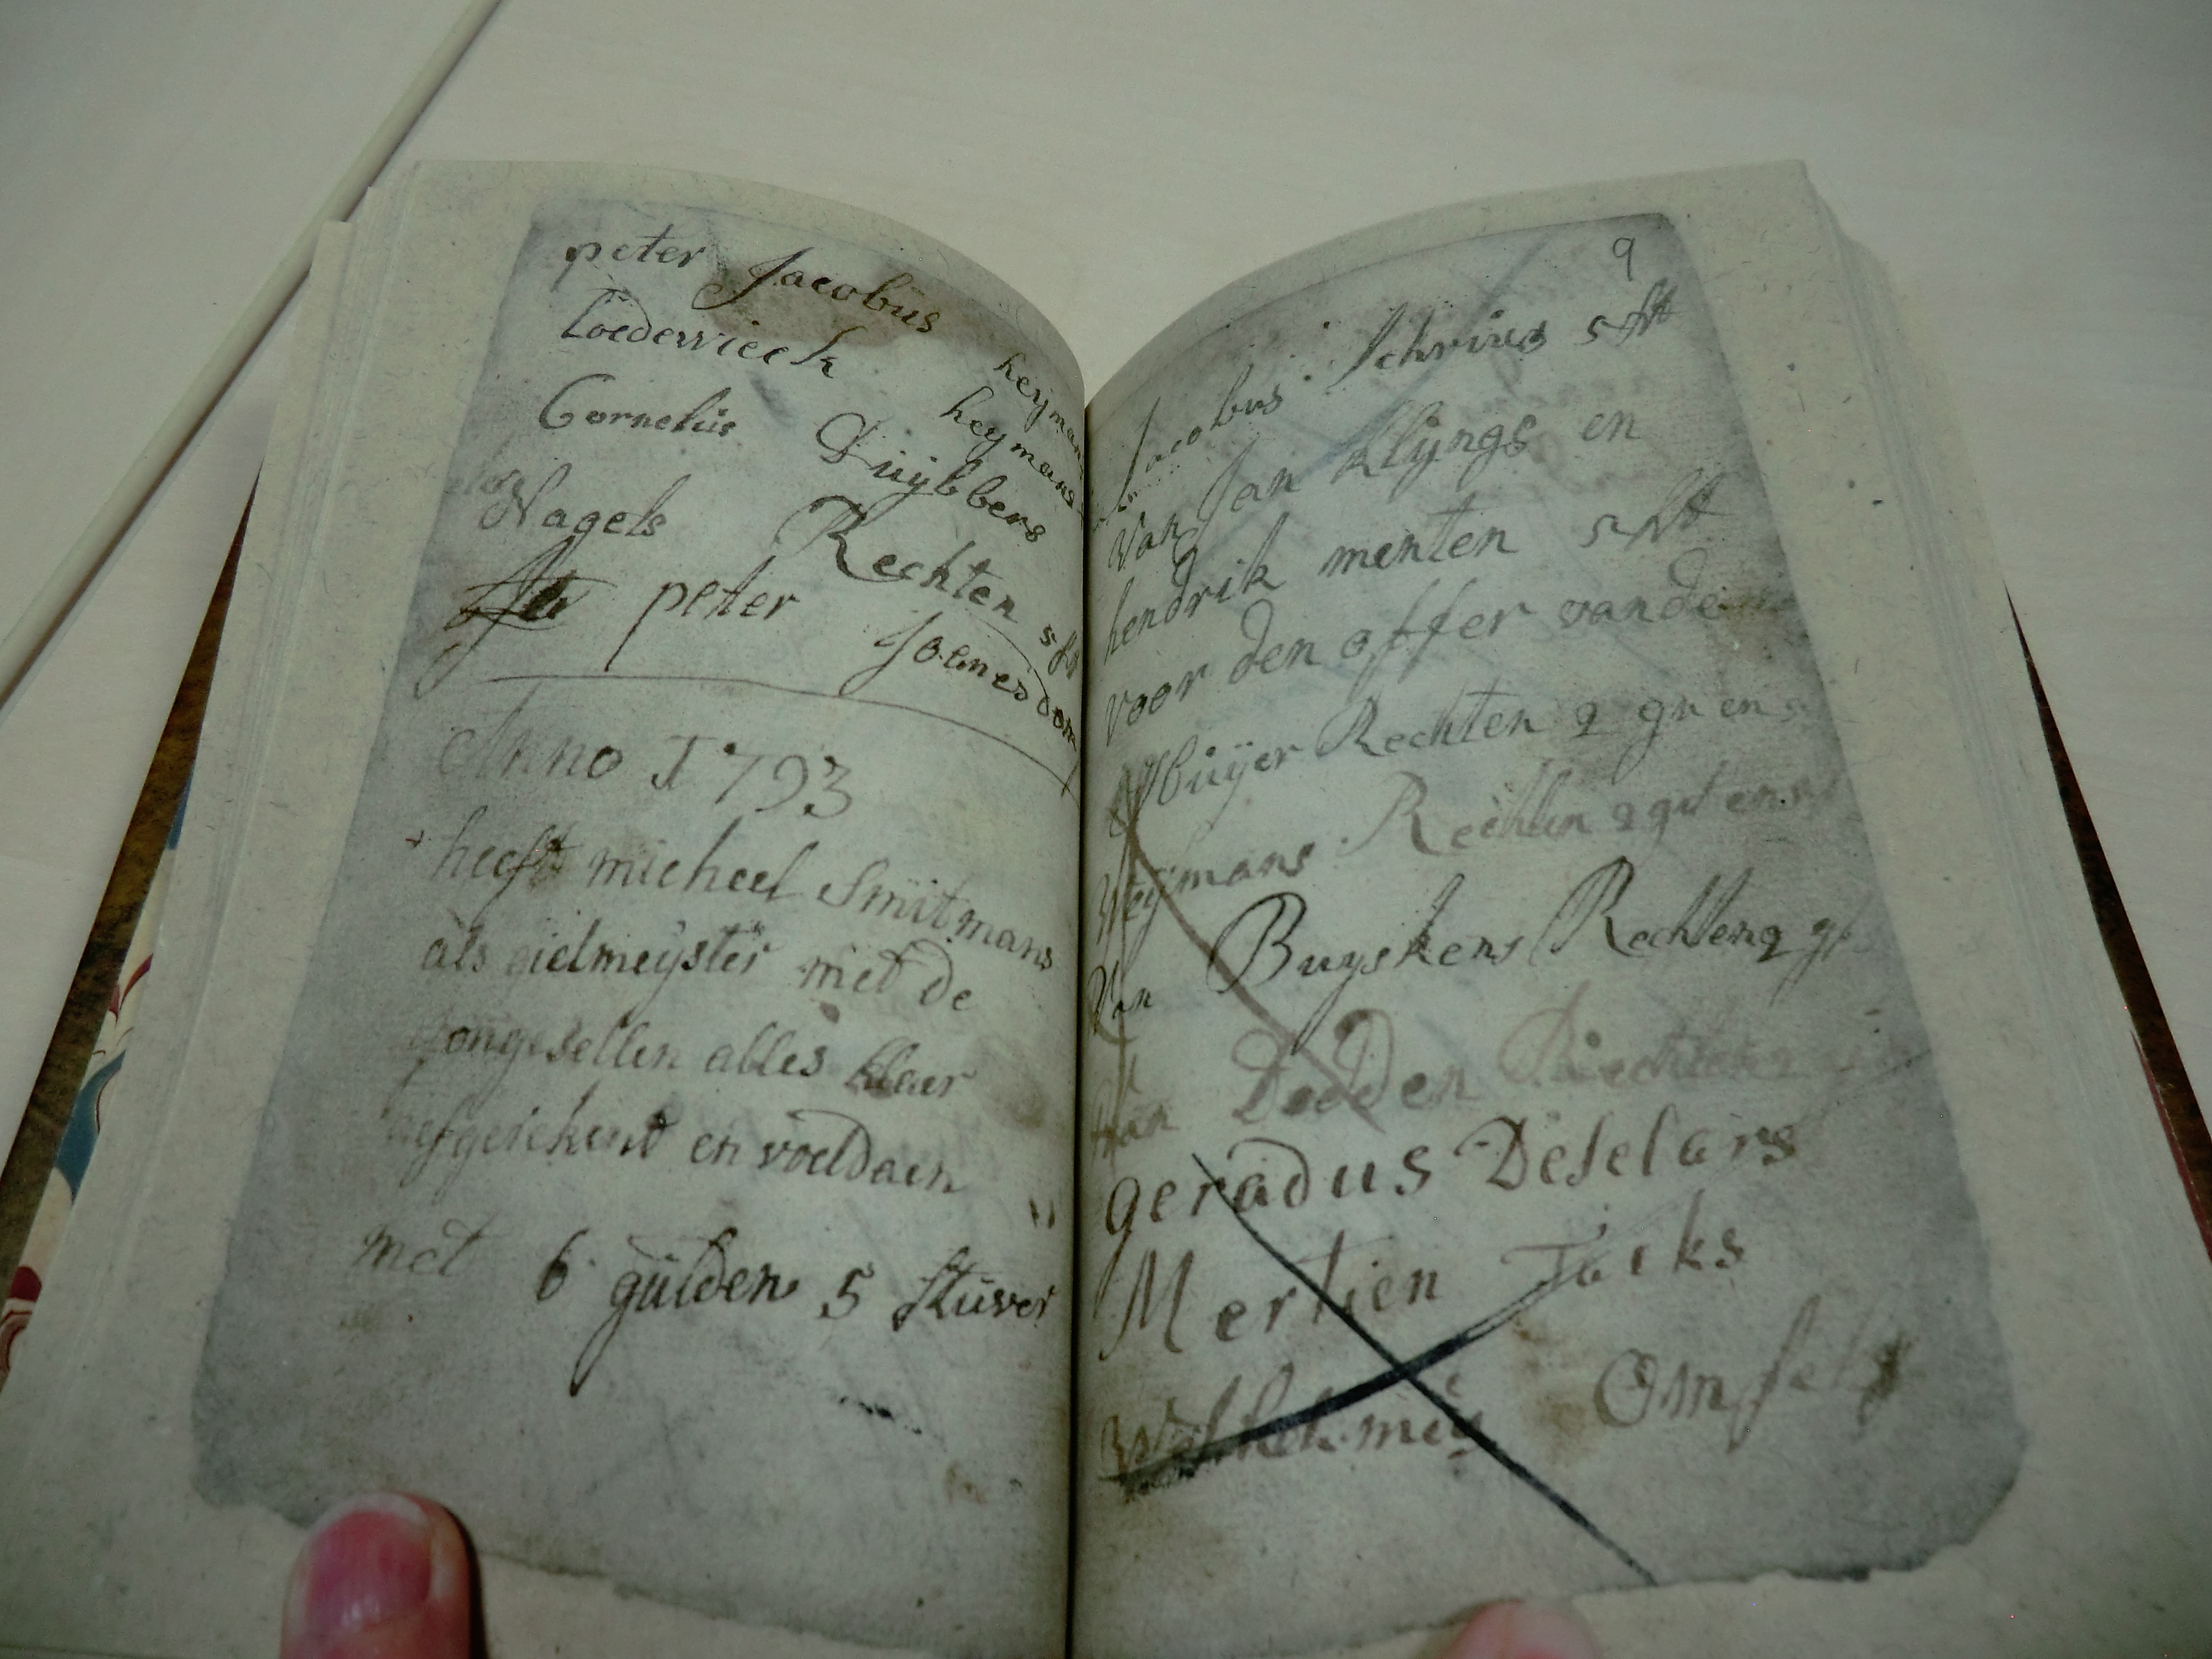 peter Jacobus heymans
Loedewieck heymans
Cornelüs Duÿbbers
Nagels Rechten 5
peter Joenesdom
Anno 1793
+ heeft micheel Smitmans
als gielmeÿster met de
jongesellen alles klaer
aefgerekent en voeldaen
met 6 gülden 5 stüver
9
Jacobus Schrius 5
Van Jan Klÿngs en
hendrik menten 5
voor den offer vande
Rechten 2 gn en
Weÿmans Rechten 2 gul en
Van Buyskens Rechten 2 g
Van Dedden Rechten 2
geradus Deselars
Mertien Jacks